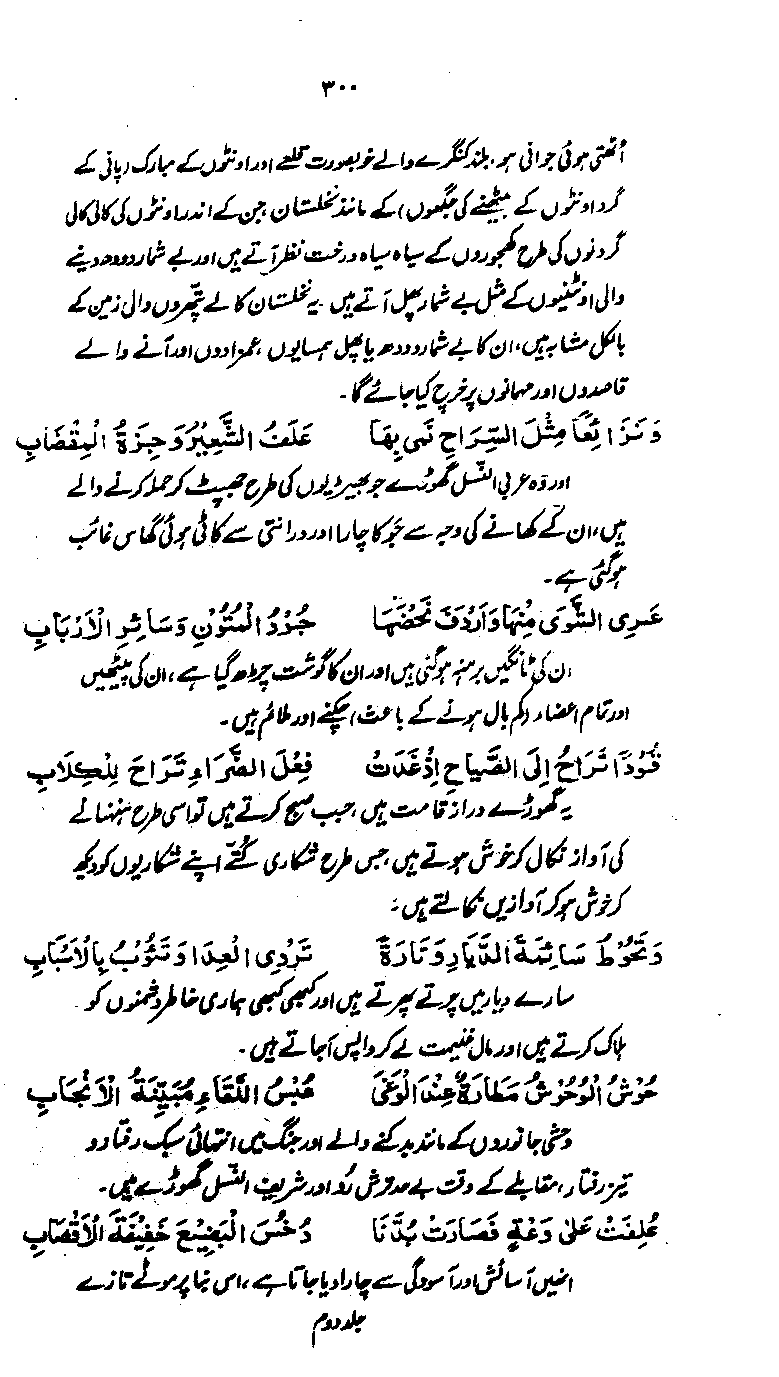 ۳۰۰
اُٹھتی ہوئی جوانی ہو، بلند کنگرے والے خوبصورت قلعے اور اونٹوں کے مبارک (پانی کے
گرد اونٹوں کے بیٹھنے کی جگھوں) کے مانند نخلستان جن کے اندر اونٹوں کی کالی کالی
گردنوں کی طرح کھجوروں کے سیاہ سیاہ درخت نظر آتے ہیں اور بے شمار دودھ دینے
والی اونٹنیوں کے مثل بے شمار پھل آتے ہیں۔ یہ نخلستان کالے پتھروں والی زمین کے
بالکل مشابہ ہیں، ان کا بے شمار دودھ یا پھل ہمسایوں، عمزادوں اور آنے والے
قاصدوں اور مہمانوں پر خرچ کیا جائے گا۔
وَنَزَائِعًا مِثْلَ السِّرَاحِ نَمَى بِهَا عَلَفُ الشَّعِيْرُ وَجِزَةُ الْمِقْضَابِ
اور وہ عربی النسل گھوڑے جو بھیڑیوں کی طرح جھپٹ کر حملہ کرنے والے
ہیں، ان کے کھانے کی وجہ سے جَو کا چارہ اور درانتی سے کاٹی ہوئی گھاس غائب
ہوگئی ہے۔
عَرِىَ الشَّوَى مِنْهَا وَاَرْدَفَ نَحْضَهَا جُرْدُ الْمُتُوْنِ وَسَائِرِ الْاٰرَابِ
ان کی ٹانگیں برہنہ ہوگئی ہیں اور ان کا گوشت چڑھ گیا ہے، ان کی پیٹھیں
اور تمام اعضاء (کم بال ہونے کے باعث) چکنے اور ملائم ہیں۔
قُوْدًا تَرَاحُ اِلَى الصِّيَاحِ اِذْ غَدَتْ فِعْلَ الضِّرَاءِ تَرَاحَ لِلْكِلَابِ
یہ گھوڑے دراز قامت ہیں، جب صبح کرتے ہیں تو اسی طرح ہنہنانے
کی آواز نکال کر خوش ہوتے ہیں، جس طرح شکاری کتے اپنے شکاریوں کو دیکھ
کر خوش ہو کر آوازیں نکالتے ہیں:
وَتَحُوْطُ سَائِمَةَ الدِّيَارِ وَتَارَةً تَرْدِى الْعِدَا وَتَؤُبُ بِالْاَسْلَابِ
سارے دیار میں چرتے پھرتے ہیں اور کبھی کبھی ہماری خاطر دشمنوں کو
ہلاک کرتے ہیں اور مال غنیمت لے کر واپس آجاتے ہیں۔
حُوْشُ الْوُحُوْشُ مَطَارَةٌ عِنْدَ الْوَغَى عُبْسُ اللِّقَاءِ مُبَيِّنَةُ الْاَنْجَابِ
وحشی جانوروں کے مانند بدکنے والے اور جنگ میں انتہائی سبک رفتار و
تیز رفتار، مقابلے کے وقت بے حد ترش رُو اور شریف النسل گھوڑے ہیں۔
عُلِفَتْ عَلٰى دَعَةٍ فَصَارَتْ بُدَّنَا دُخْسَ الْبَضِيْعِ خَفِيْفَةَ الْاَقْصَابِ
انہیں آسائش اور آسودگی سے چارہ دیا جاتا ہے، اسی بنا پر موٹے تازے
جلد دوم